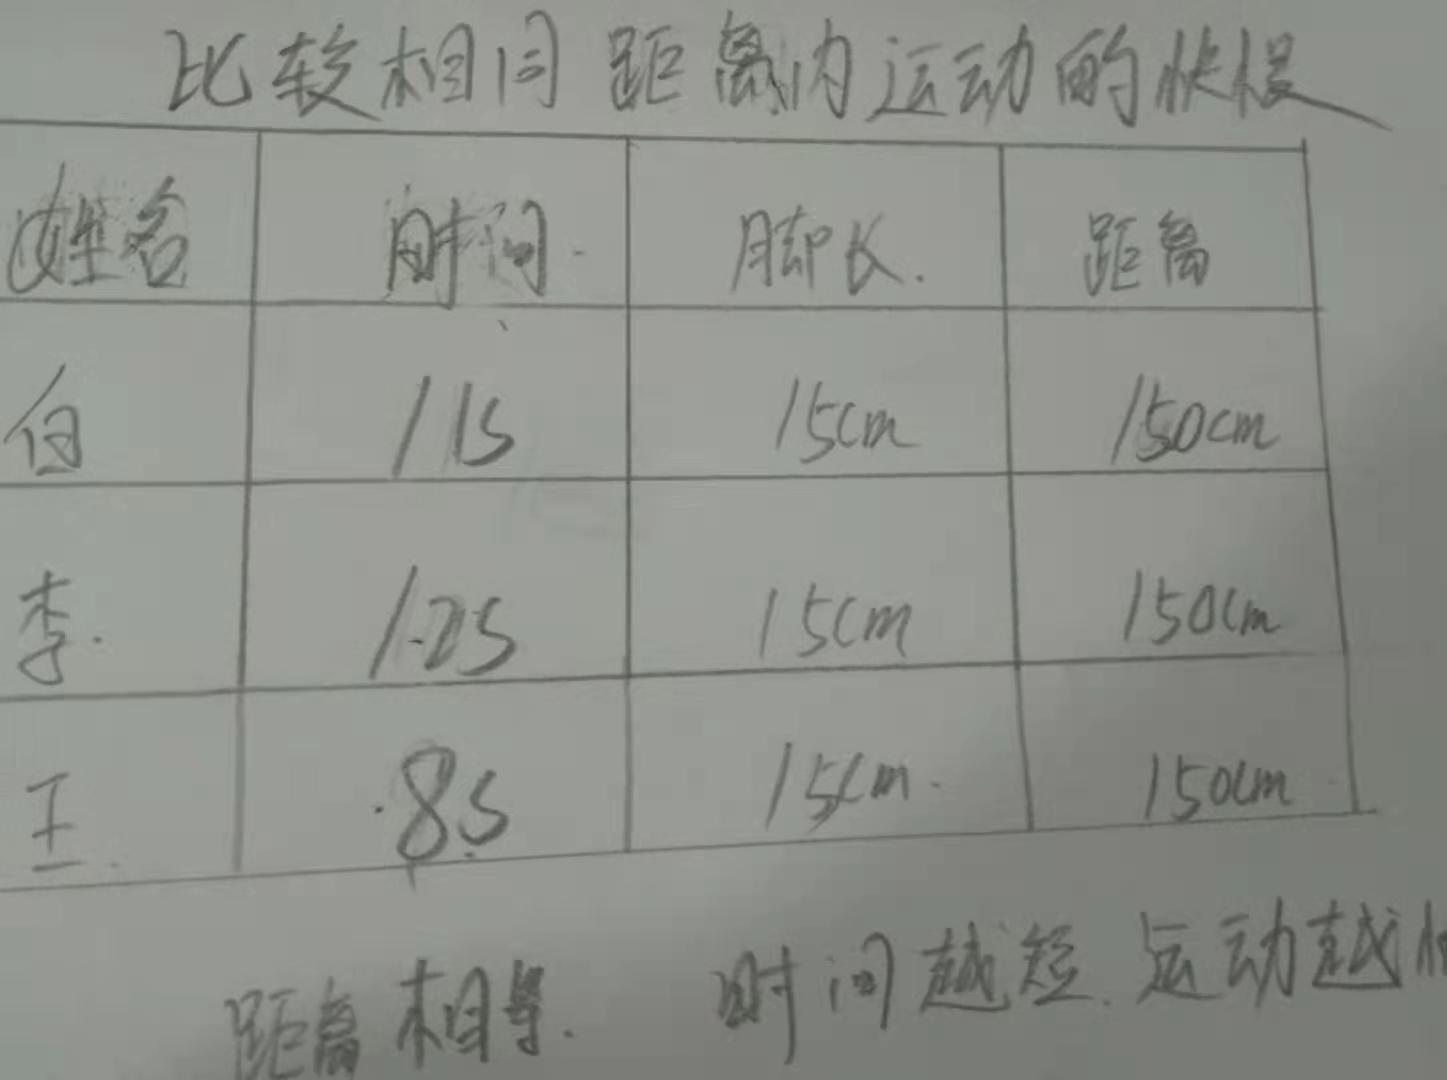 比较相同距离内运动的快慢
姓名 时间 脚长. 距离
白 11s 15cm 150cm
李. 1.2s 15cm 150cm
王 8s 15cm. 150cm
距离相等. 时间越短.运动越快